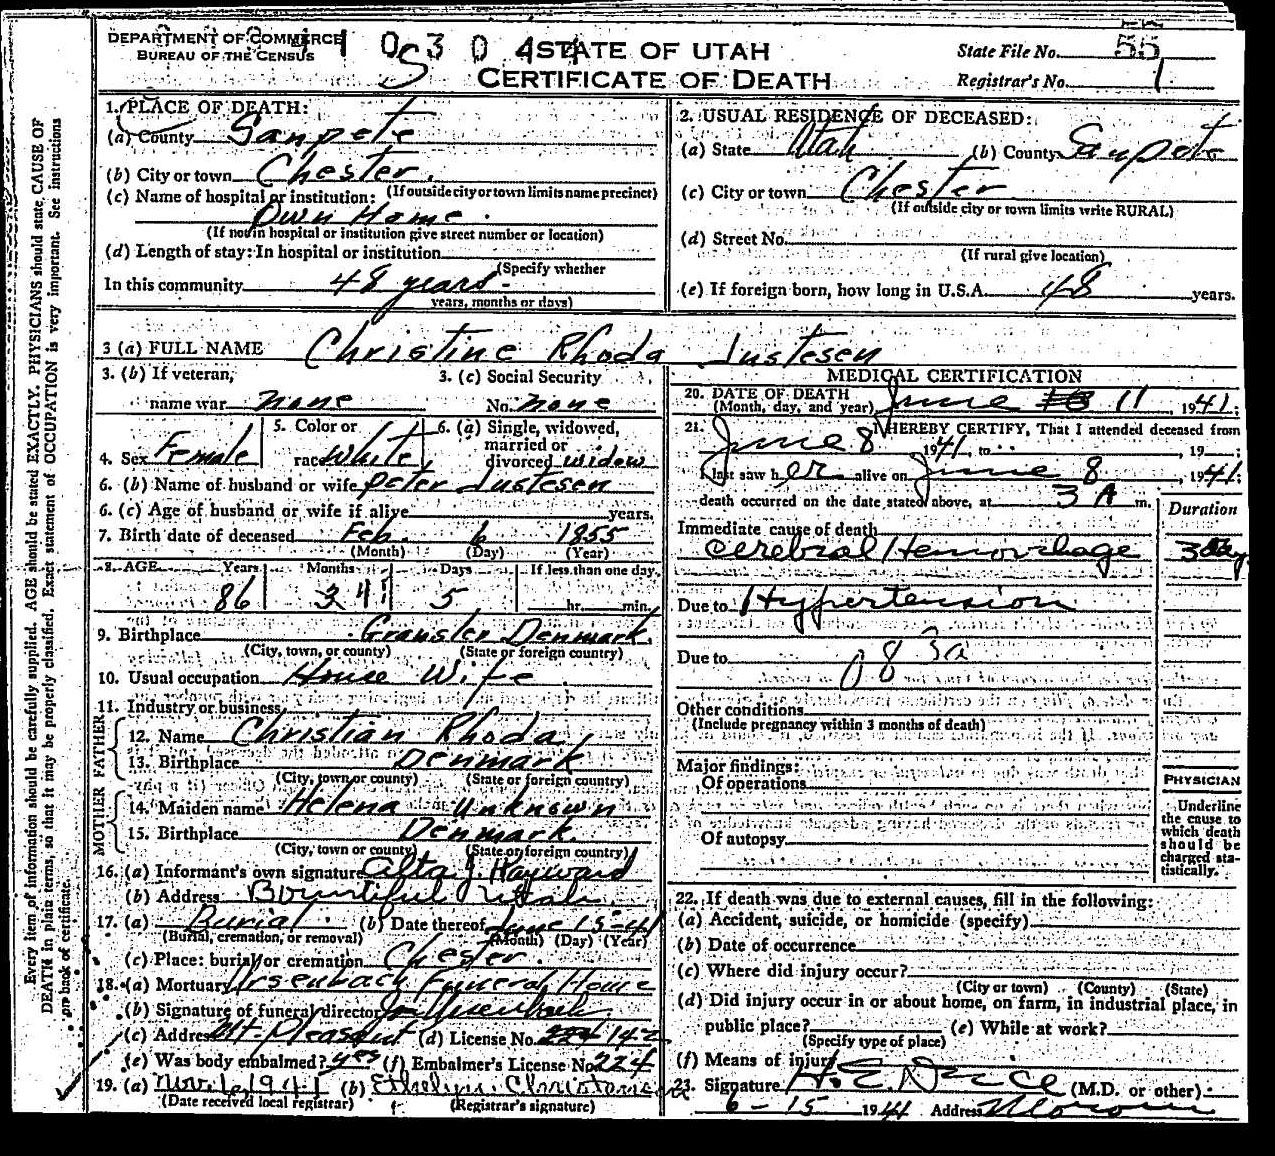 DEPARTMENT OF COMMERCE
BUREAU OF THE CENSUS
STATE OF UTAH
CERTIFICATE OF DEATH
State File No. 55
Registrar's No. 1
Every item of information should be carefully supplied. AGE should be stated EXACTLY. PHYSICIANS should state CAUSE OF
DEATH in plain terms, so that it may be properly classified. Exact statement of OCCUPATION is very important. See instructions
on back of certificate.
1. PLACE OF DEATH:
(a) County Sanpete
(b) City or town Chester.
(If outside city or town limits name precinct)
(c) Name of hospital or institution:
Own Home.
(If not in hospital or institution give street number or location)
(d) Length of stay: In hospital or institution
(Specify whether
In this community 48 years-
years, months or days)
2. USUAL RESIDENCE OF DECEASED:
(a) State Utah (b) County Sanpete
(c) City or town Chester
(If outside city or town limits write RURAL)
(d) Street No.
(If rural give location)
(e) If foreign born, how long in U.S.A. 48 years.
3 (a) FULL NAME Christine Rhoda Justesen
3. (b) If veteran, name war none
3. (c) Social Security No. none
4. Sex Female
5. Color or race White
6. (a) Single, widowed, married or divorced widow
6. (b) Name of husband or wife Peter Justesen
6. (c) Age of husband or wife if alive years.
7. Birth date of deceased Feb. 6 1855
(Month) (Day) (Year)
8. AGE Years Months Days If less than one day
86 3 4 5 hr. min.
9. Birthplace Denmark.
(City, town, or county) (State or foreign country)
10. Usual occupation House Wife.
11. Industry or business
FATHER
12. Name Christian Rhoda
13. Birthplace Denmark
(City, town or county) (State or foreign country)
MOTHER
14. Maiden name Helena Unknown
15. Birthplace Denmark.
(City, town or county) (State or foreign country)
16. (a) Informant's own signature Alta J. Hayward
(b) Address Bountiful Utah
17. (a) Burial. (b) Date thereof June 15-41
(Burial, cremation, or removal) (Month) (Day) (Year)
(c) Place: burial or cremation Chester.
18. (a) Mortuary Ursenbach Funeral Home
(b) Signature of funeral director
(c) Address Mt. Pleasant (d) License No. 224 142
(e) Was body embalmed? yes (f) Embalmer's License No. 224
19. (a) 1941 (b) Ethelyn Christensen
(Date received local registrar) (Registrar's signature)
MEDICAL CERTIFICATION
20. DATE OF DEATH
(Month, day, and year) June 11, 1941;
21. I HEREBY CERTIFY, That I attended deceased from
June 8 1941, to , 19 ;
I last saw her alive on June 8, 1941;
death occurred on the date stated above, at 3 A m.
Duration
Immediate cause of death
Cerebral Hemorrhage 3 day
Due to Hypertension
Due to
083a
Other conditions
(Include pregnancy within 3 months of death)
Major findings:
Of operations
Of autopsy
PHYSICIAN
Underline
the cause to
which death
should be
charged sta-
tistically.
22. If death was due to external causes, fill in the following:
(a) Accident, suicide, or homicide (specify)
(b) Date of occurrence
(c) Where did injury occur?
(City or town) (County) (State)
(d) Did injury occur in or about home, on farm, in industrial place, in
public place? (e) While at work?
(Specify type of place)
(f) Means of injury
23. Signature (M.D. or other)
6-15 1941 Address Moroni